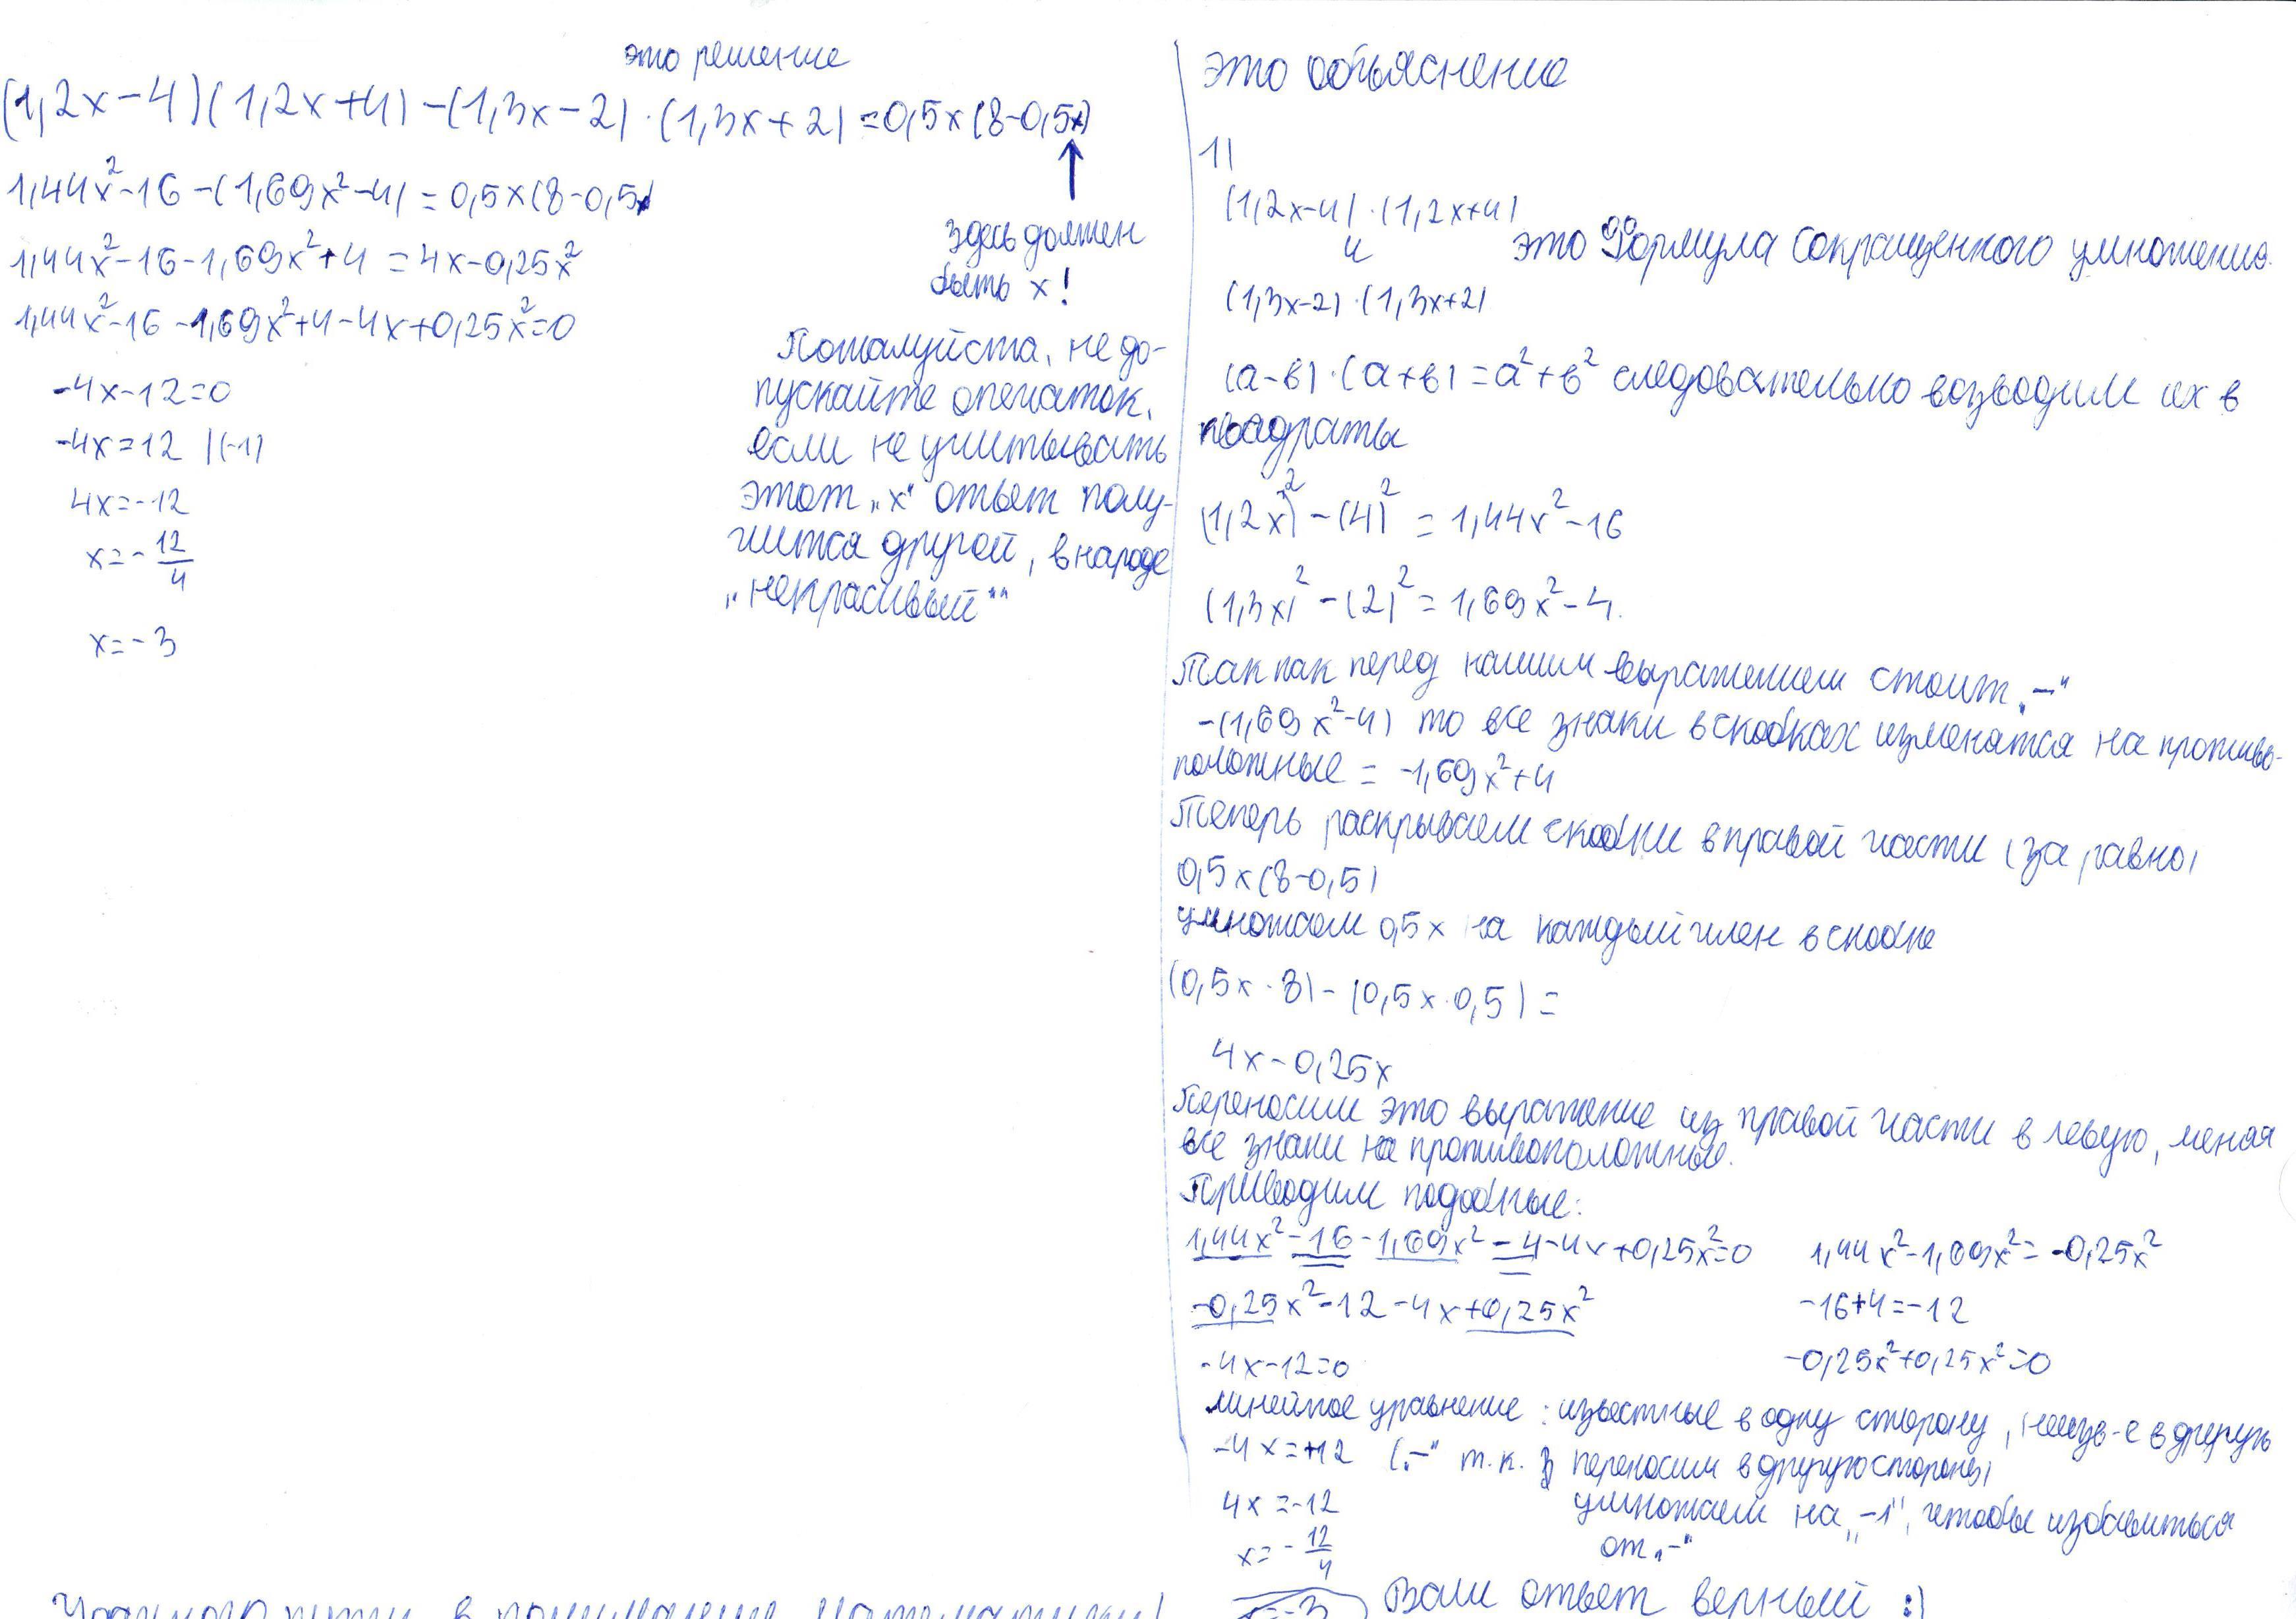 это решение
(1,2x-4)(1,2x+4)-(1,3x-2)·(1,3x+2)=0,5x(8-0,5x)
1,44x²-16-(1,69x²-4)=0,5x(8-0,5x
1,44x²-16-1,69x²+4=4x-0,25x²
1,44x²-16-1,69x²+4-4x+0,25x²=0
-4x-12=0
-4x=12 |(-1)
4x=-12
x=-12/4
x=-3
здесь должен
быть x!
Пожалуйста, не до-
пускайте опечаток.
если не учитывать
этот „x" ответ полу-
чится другой, в народе
„некрасивый""
это объяснение
1)
(1,2x-4)·(1,2x+4)
и
это формула сокращенного умножения.
(1,3x-2)·(1,3x+2)
(a-b)·(a+b)=a²+b² следовательно возводим их в
квадраты
(1,2x)²-(4)²=1,44x²-16
(1,3x)²-(2)²=1,69x²-4.
Так как перед нашим выражением стоит „-"
-(1,69x²-4) то все знаки в скобках изменятся на противо-
положные = -1,69x²+4
Теперь раскрываем скобки в правой части (за равно)
0,5x(8-0,5)
умножаем 0,5x на каждый член в скобке
(0,5x·8)-(0,5x·0,5)=
4x-0,25x
Переносим это выражение из правой части в левую, меняя
все знаки на противоположные.
Приводим подобные:
1,44x²-16-1,69x²-4-4x+0,25x²=0 1,44x²-1,69x²=-0,25x²
-0,25x²-12-4x+0,25x² -16+4=-12
-4x-12=0 -0,25x²+0,25x²=0
линейное уравнение: известные в одну сторону, неизв-е в другую
-4x=+12 („-" т.к. переносим в другую сторону)
4x=-12 умножаем на „-1", чтобы избавиться
x=-12/4 от „-"
x=-3 Ваш ответ верный :)
Удачного пути в понимание математики!